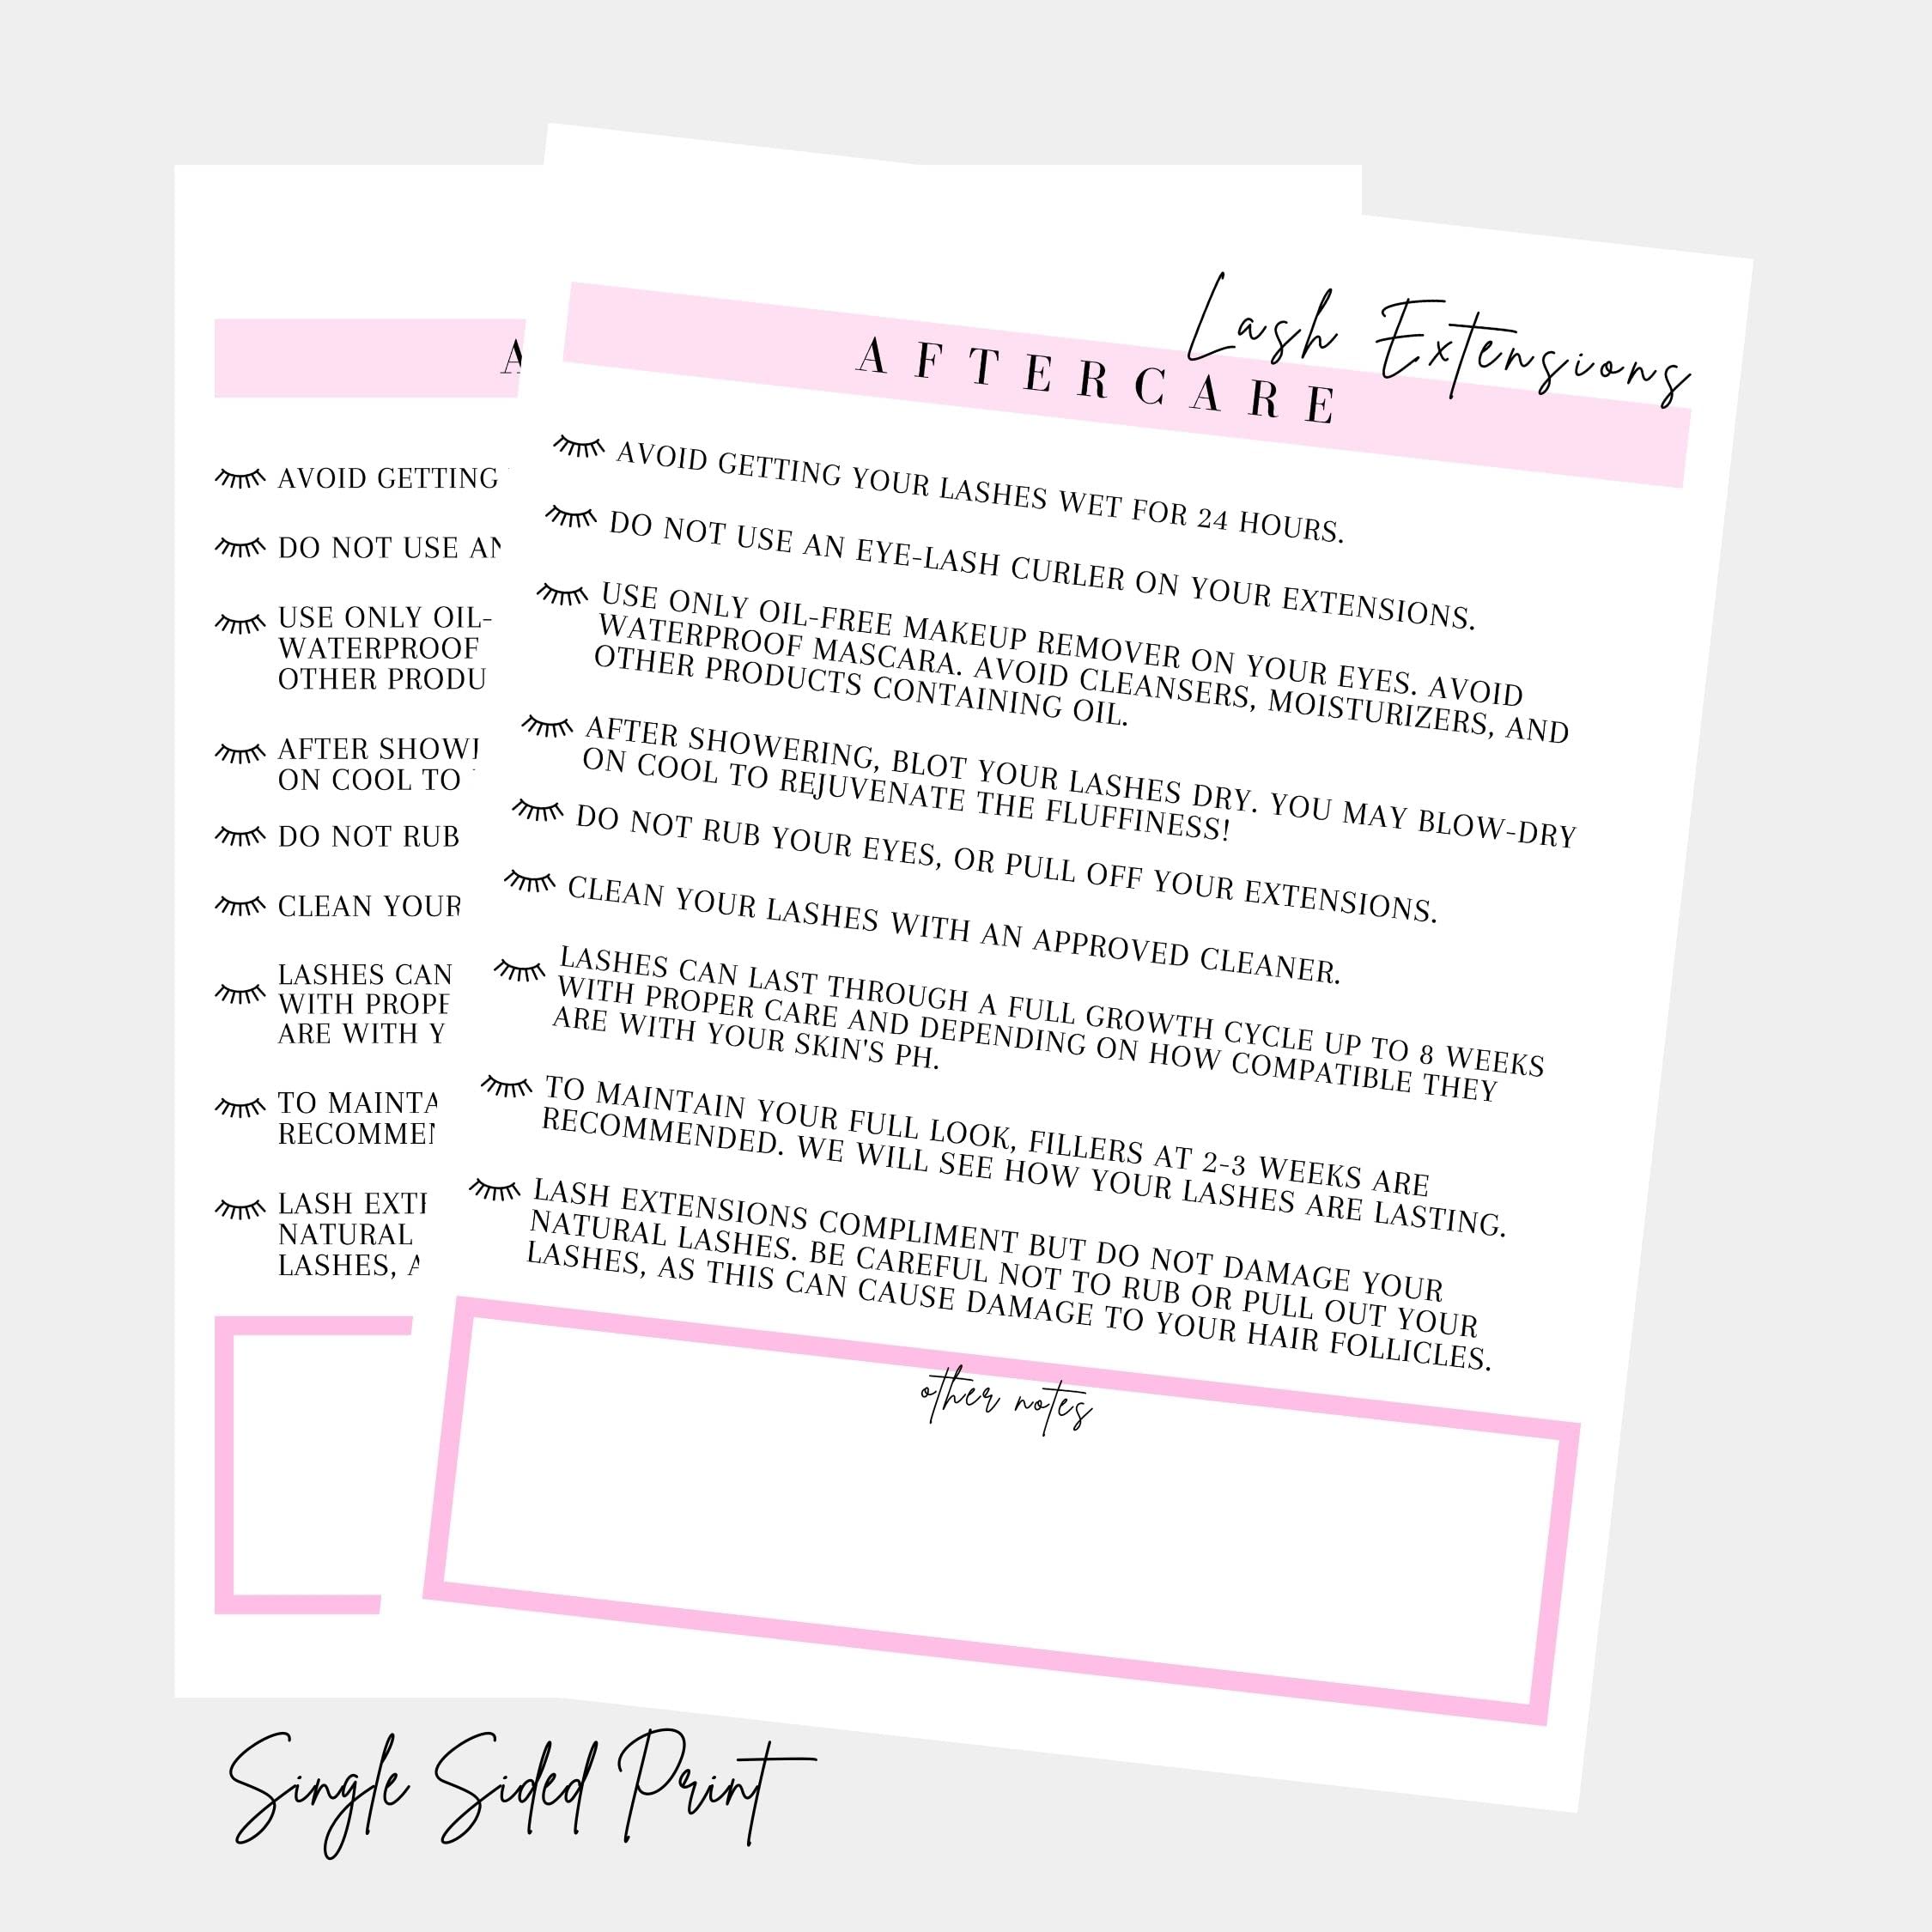 Lash Extensions
AFTERCARE
AVOID GETTING YOUR LASHES WET FOR 24 HOURS.
DO NOT USE AN EYE-LASH CURLER ON YOUR EXTENSIONS.
USE ONLY OIL-FREE MAKEUP REMOVER ON YOUR EYES. AVOID
WATERPROOF MASCARA. AVOID CLEANSERS, MOISTURIZERS, AND
OTHER PRODUCTS CONTAINING OIL.
AFTER SHOWERING, BLOT YOUR LASHES DRY. YOU MAY BLOW-DRY
ON COOL TO REJUVENATE THE FLUFFINESS!
DO NOT RUB YOUR EYES, OR PULL OFF YOUR EXTENSIONS.
CLEAN YOUR LASHES WITH AN APPROVED CLEANER.
LASHES CAN LAST THROUGH A FULL GROWTH CYCLE UP TO 8 WEEKS
WITH PROPER CARE AND DEPENDING ON HOW COMPATIBLE THEY
ARE WITH YOUR SKIN'S PH.
TO MAINTAIN YOUR FULL LOOK, FILLERS AT 2-3 WEEKS ARE
RECOMMENDED. WE WILL SEE HOW YOUR LASHES ARE LASTING.
LASH EXTENSIONS COMPLIMENT BUT DO NOT DAMAGE YOUR
NATURAL LASHES. BE CAREFUL NOT TO RUB OR PULL OUT YOUR
LASHES, AS THIS CAN CAUSE DAMAGE TO YOUR HAIR FOLLICLES.
other notes
A
AVOID GETTING
DO NOT USE AN
USE ONLY OIL-
WATERPROOF
OTHER PRODU
AFTER SHOWE
ON COOL TO
DO NOT RUB
CLEAN YOUR
LASHES CAN
WITH PROPE
ARE WITH Y
TO MAINTA
RECOMMEN
LASH EXTE
NATURAL
LASHES, A
Single Sided Print